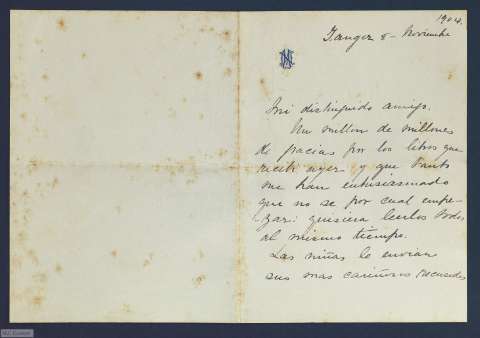 1904.
Tanger 8 - Noviembre
Mi distinguido amigo.
Un millon de millones
de gracias por los libros que
recibi ayer y que tanto
me han entusiasmado
que no se por cual empe-
zar: quisiera leerlos todos
al mismo tiempo.
Las niñas le envian
sus mas cariñosos recuerdos